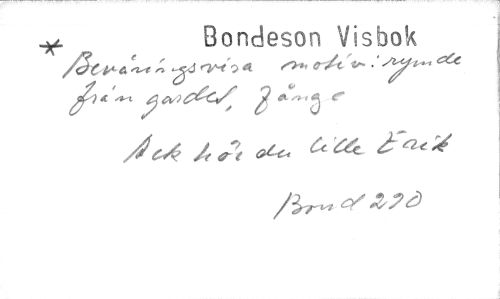 Bondeson Visbok
* Beväringsvisa motiv: rymde
från gardet, fånge
Ack hör du lille Erik
Bond 290